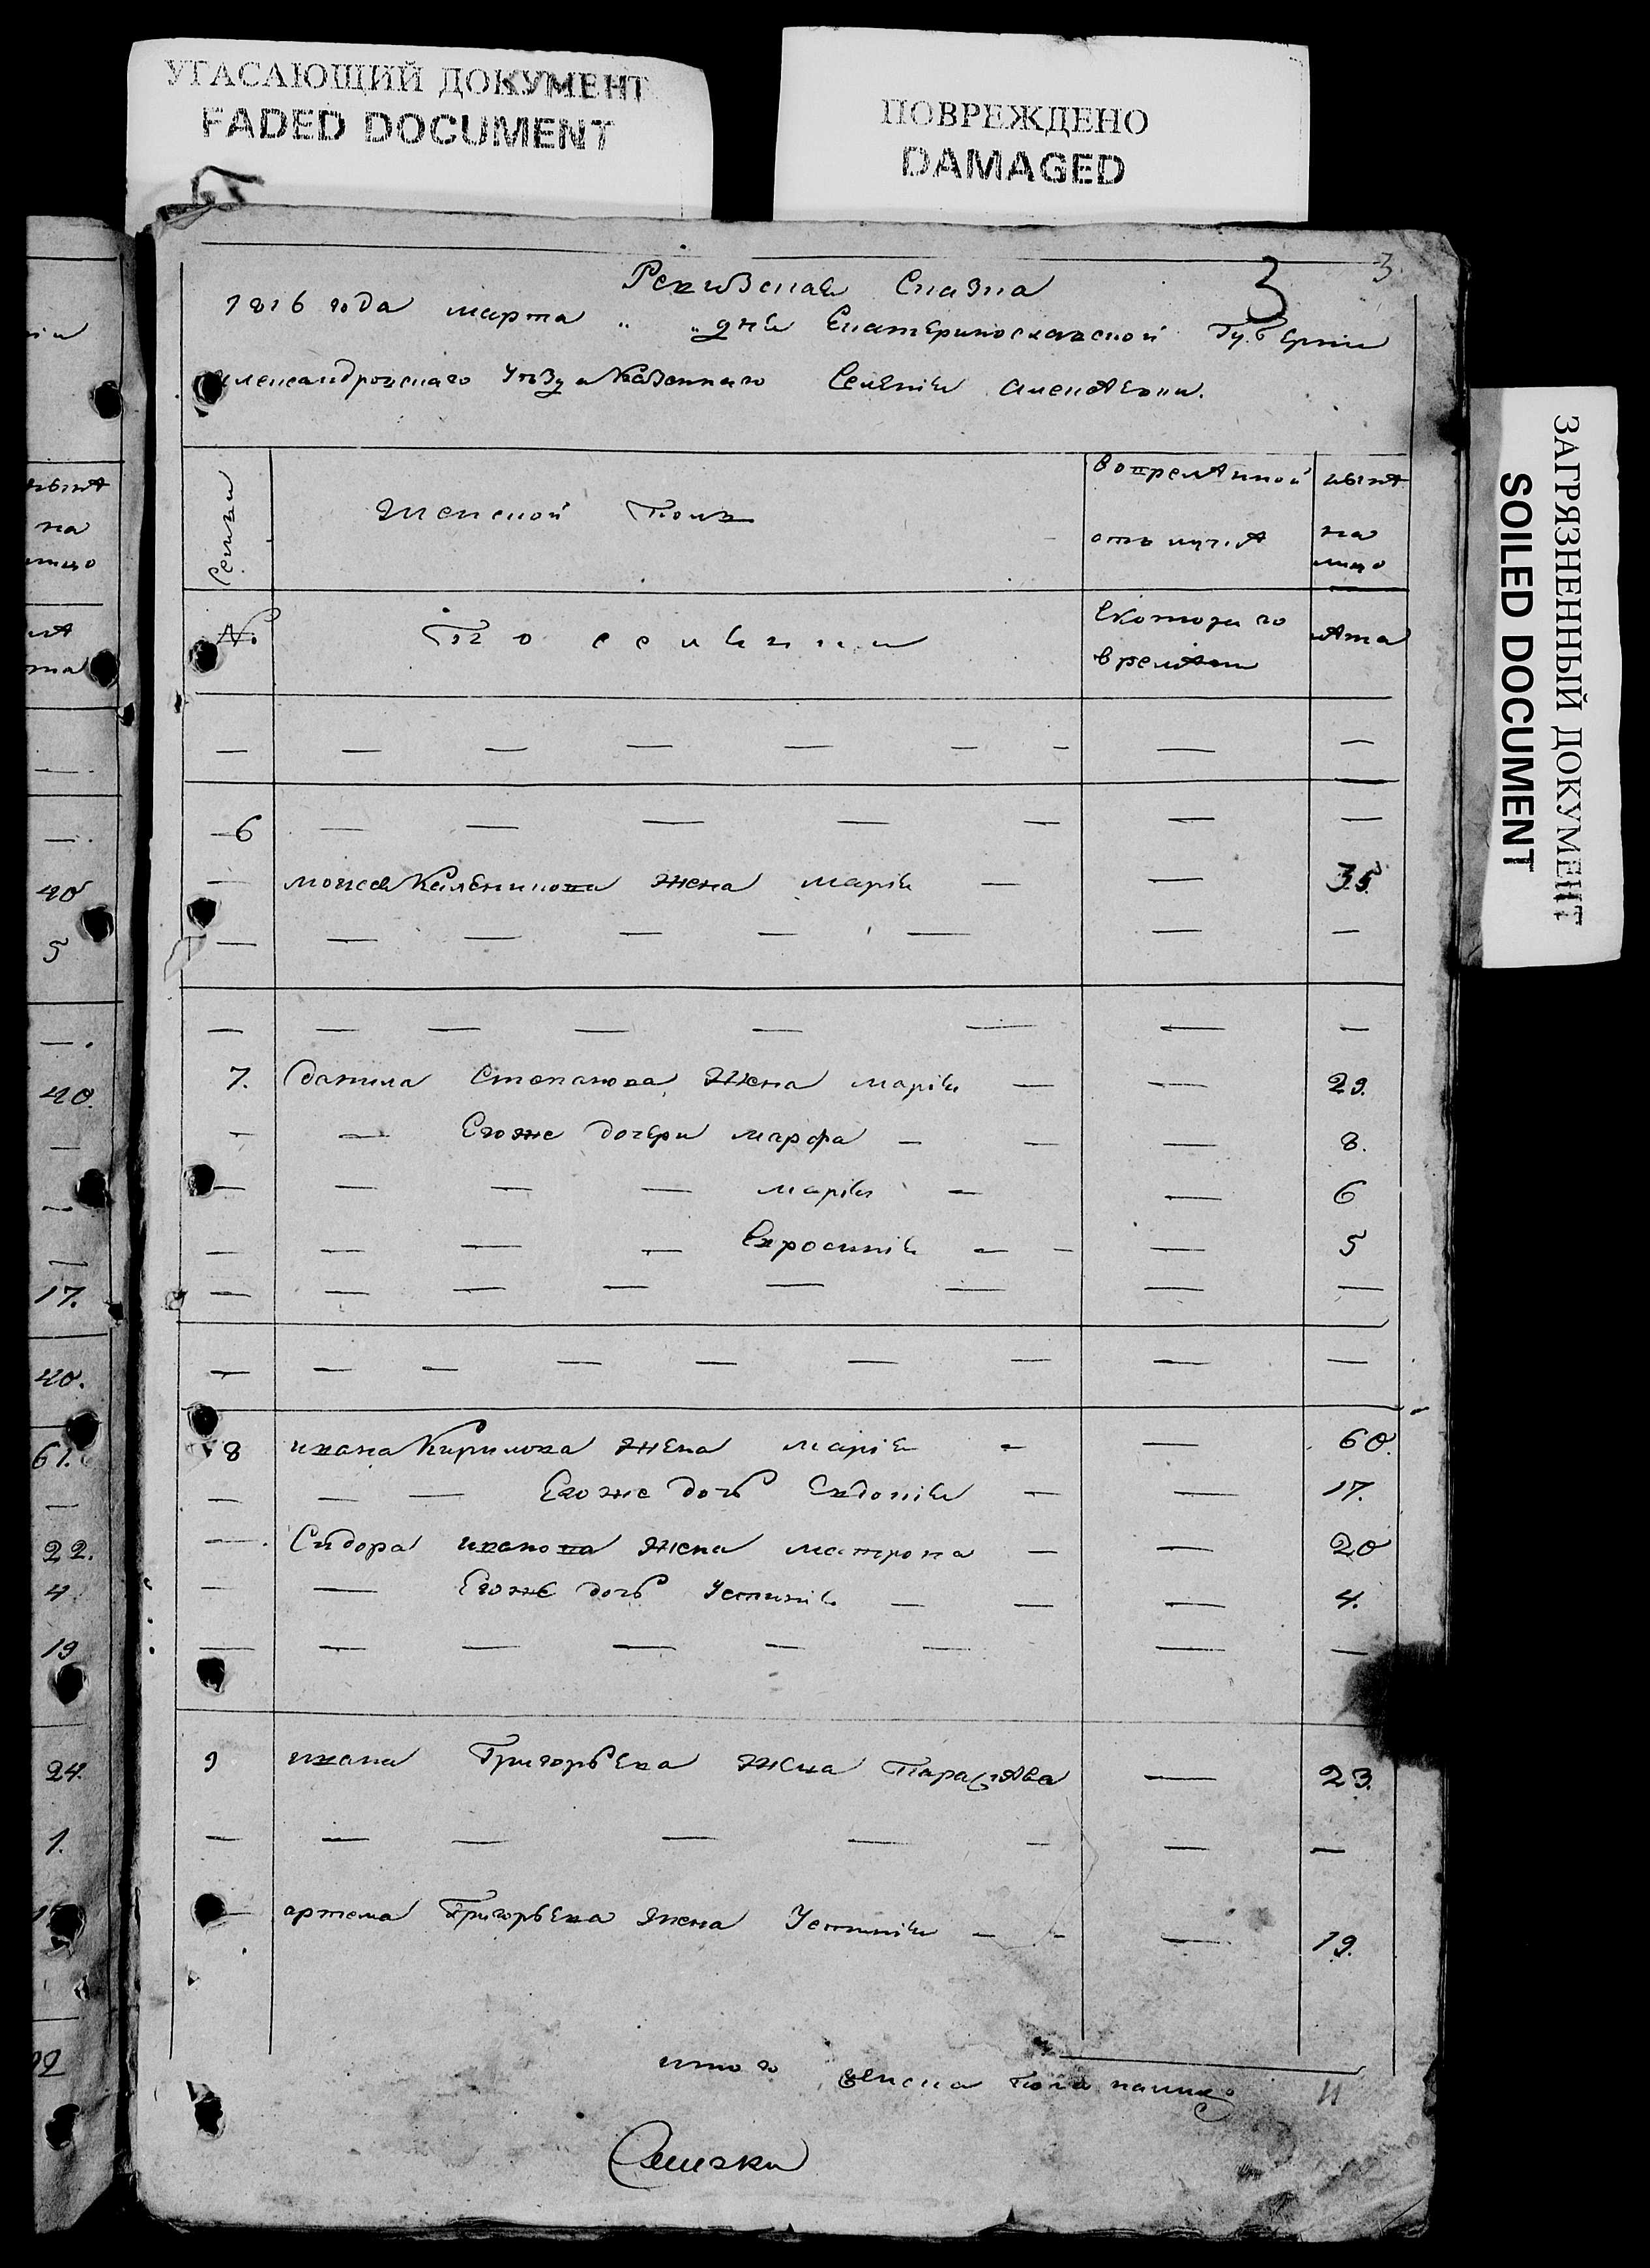 УГАСАЮЩИЙ ДОКУМЕНТ
FADED DOCUMENT
ПОВРЕЖДЕНО
DAMAGED
ЗАГРЯЗНЕННЫЙ ДОКУМЕНТ
SOILED DOCUMENT
3 3
Ревизская Сказка
1816 года марта " " дня Екатеринославской Губернии
александровскаго уѣзда Казеннаго Селения алексѣевки.
Семьи
Женской Полъ
вовремѧнной отълучкѣ
нынѣ на лицо
№
То селении
Скотораго времѧни
лѣта
— — — — — — — — —
6 — — — — — — —
— моисея Каленикова жена мария — — 35.
— — — — — — — —
— — — — — — — —
7. данила Степанова жена мария — — 29.
— — Егоже дочери марфа — — — 8.
— — — — мария — — 6
— — — — Евросиния — — — 5
— — — — — — — —
— — — — — — — — —
8 ивана Кирилова жена мария — — 60.
— — — Егоже дочь Евдокия — — 17.
— Сидора иванова жена матрона — — 20
— — Егоже дочь Устиния — — — 4.
— — — — — — — —
9 ивана Григорьева жена Параскѣва — 23.
— — — — — — — —
— артема Григорьева жена Устиния — — — 19.
итого женска пола налицо 11
40
5
40.
17.
40.
61.
22.
4
19
24.
1.